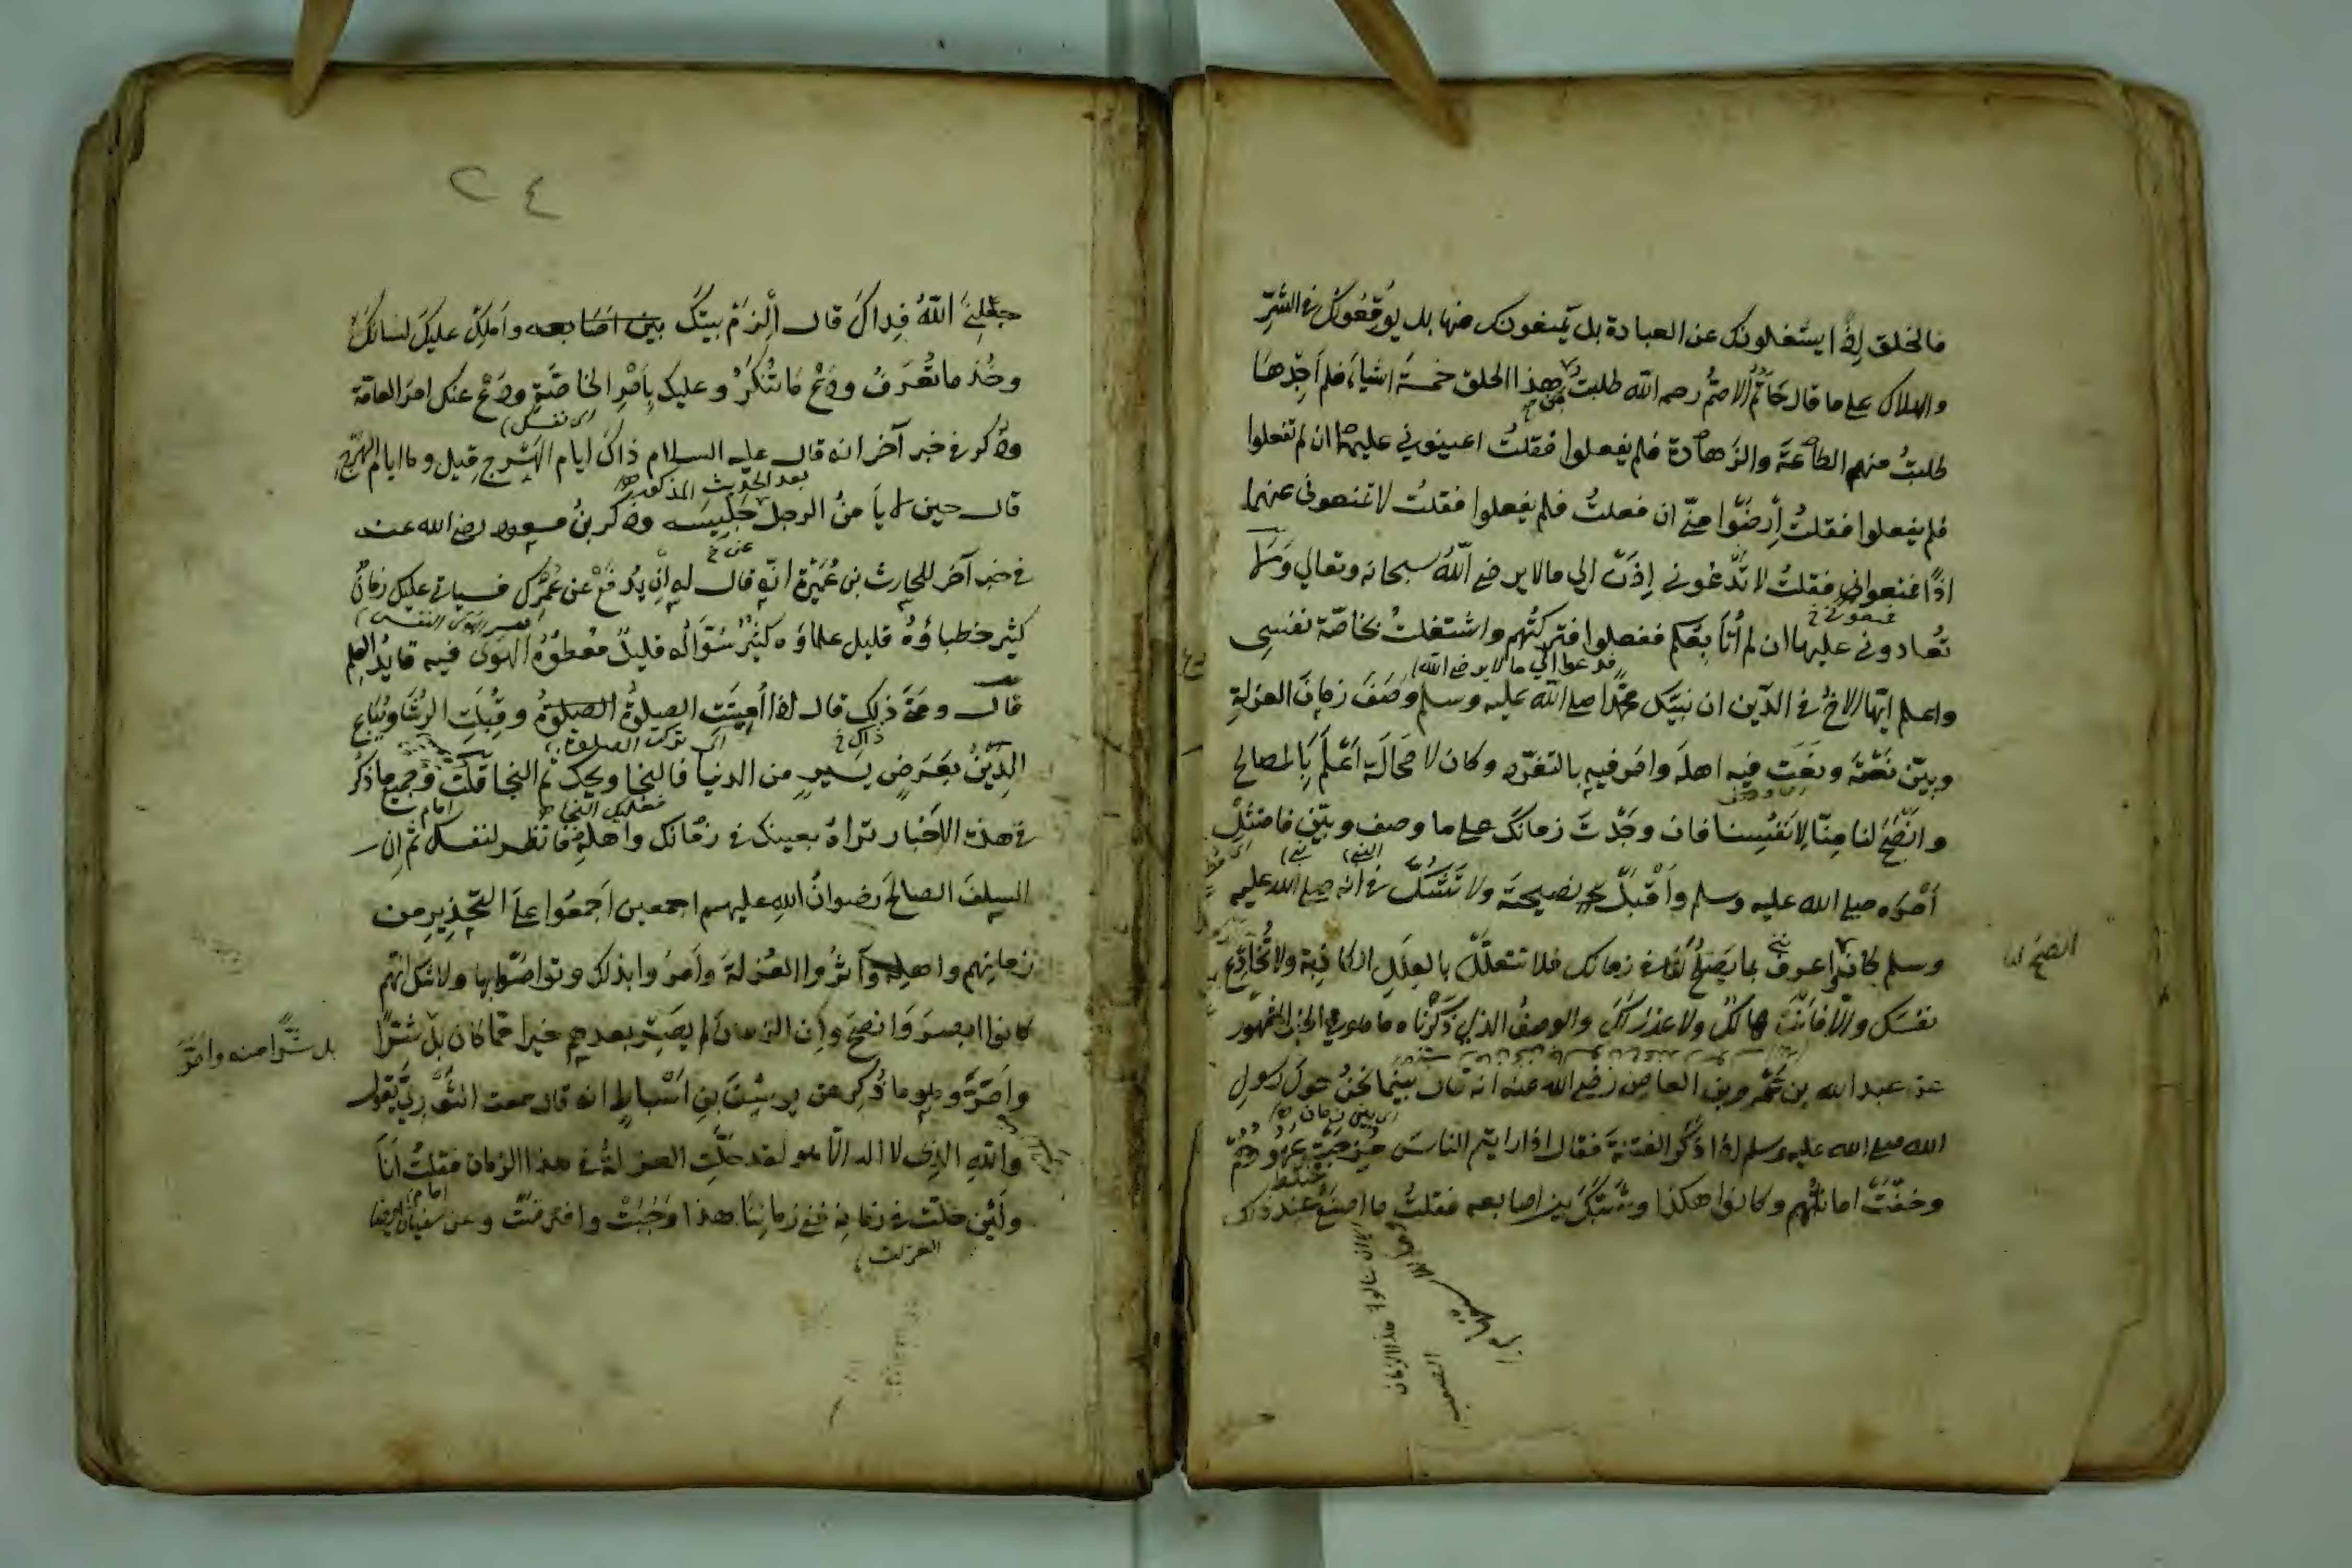 فالخلق اذا يشغلونك عن العبادة بل يمنعونك منها بل يوقعونك في الشر
والهلاك على ما قال حاتم الاصم رحمه الله طلبت من هذا الخلق خمسة اشياء فلم اجدها
طلبت منهم الطاعة والزهادة فلم يفعلوا فقلت اعينوني عليهما ان لم تفعلوا
فلم يفعلوا فقلت ارضوا مني ان فعلت فلم يفعلوا فقلت لا تمنعوني عنهما
اذا فمنعوني فقلت لا تدعوني اذن الي ما لا يرضي الله سبحانه وتعالي ولا
فمنعوني خ
تعادوني عليها ان لم اتابعكم ففعلوا فتركتهم واشتغلت بخاصة نفسي
فدعوا الي ما لا يرضي الله
واعلم ايها الاخ في الدين ان نبيك محمدا صلي الله عليه وسلم وصف زمان العزلة
وبين نعته ونعت فيه اهله وامر فيه بالتفرد وكان لا محالة اعلم بالمصالح
وانصح لنا منا لانفسنا فان وجدت زمانك على ما وصف وبين فامتثل
امره صلي الله عليه وسلم واقبل نصيحته ولا تشك في انه صلي الله عليه
وسلم كان اعرف بما يصلح لك في زمانك فلا تتعلل بالعلل الكاذبة ولا تخادع
انصح لنا
نفسك والا فانت هالك ولا عذر لك والوصف الذي ذكرناه ما هو في الخبر المشهور
عن عبد الله بن عمرو بن العاص رضي الله عنه انه قال بينما نحن حول رسول
الله صلي الله عليه وسلم اذ ذكر الفتنة فقال اذا رايتم الناس مرجت عهودهم
وخفت اماناتهم وكانوا هكذا وشبك بين اصابعه فقلت ما اصنع عند ذلك
٢٤
جعلني الله فداك قال الزم بيتك بين اصابعه واملك عليك لسانك
وخذ ما تعرف ودع ما تنكر وعليك بامر الخاصة ودع عنك امر العامة
اي نفسك
وذكر في خبر آخر انه قال عليه السلام ذاك ايام الهرج قيل وما ايام الهرج
بعد الحديث المذكور
قال حين لا يأمن الرجل جليسه وذكر بن مسعود رضي الله عنه
في خبر آخر للحارث بن عميرة انه قال له ان يدفع عن عمرك فسياتي عليك زمان
كثير خطباؤه قليل علماؤه كثير سؤاله قليل معطوه الهوى فيه قايد العلم
قال ومتى ذلك قال اذا اميتت الصلوة وقبلت الرشا ويباع
اي تركت الصلوة
ذاك خ
الدين بعرض يسير من الدنيا فالنجا ويحك ثم النجا قلت وجميع ما ذكر
في هذه الاخبار تراه بعينك في زمانك واهله فانظر لنفسك ثم ان
السلف الصالح رضوان الله عليهم اجمعين اجمعوا على التحذير من
زمانهم واهله وآثروا العزلة وامروا بذلك وتواصوا بها ولا شك انهم
كانوا ابصر وانصح وان الزمان لم يصر بعدهم خيرا مما كان بل شرا
بل شرا منه وامر
وامر وهو ما ذكر عن يوسف بن اسباط انه قال سمعت الثوري يقول
والله الذي لا اله الا هو لقد حلت العزلة في هذا الزمان فقلت انا
ولئن حلت في زمانه ففي زماننا هذا وجبت وافترضت وعن سفيان ايضا
العزلت